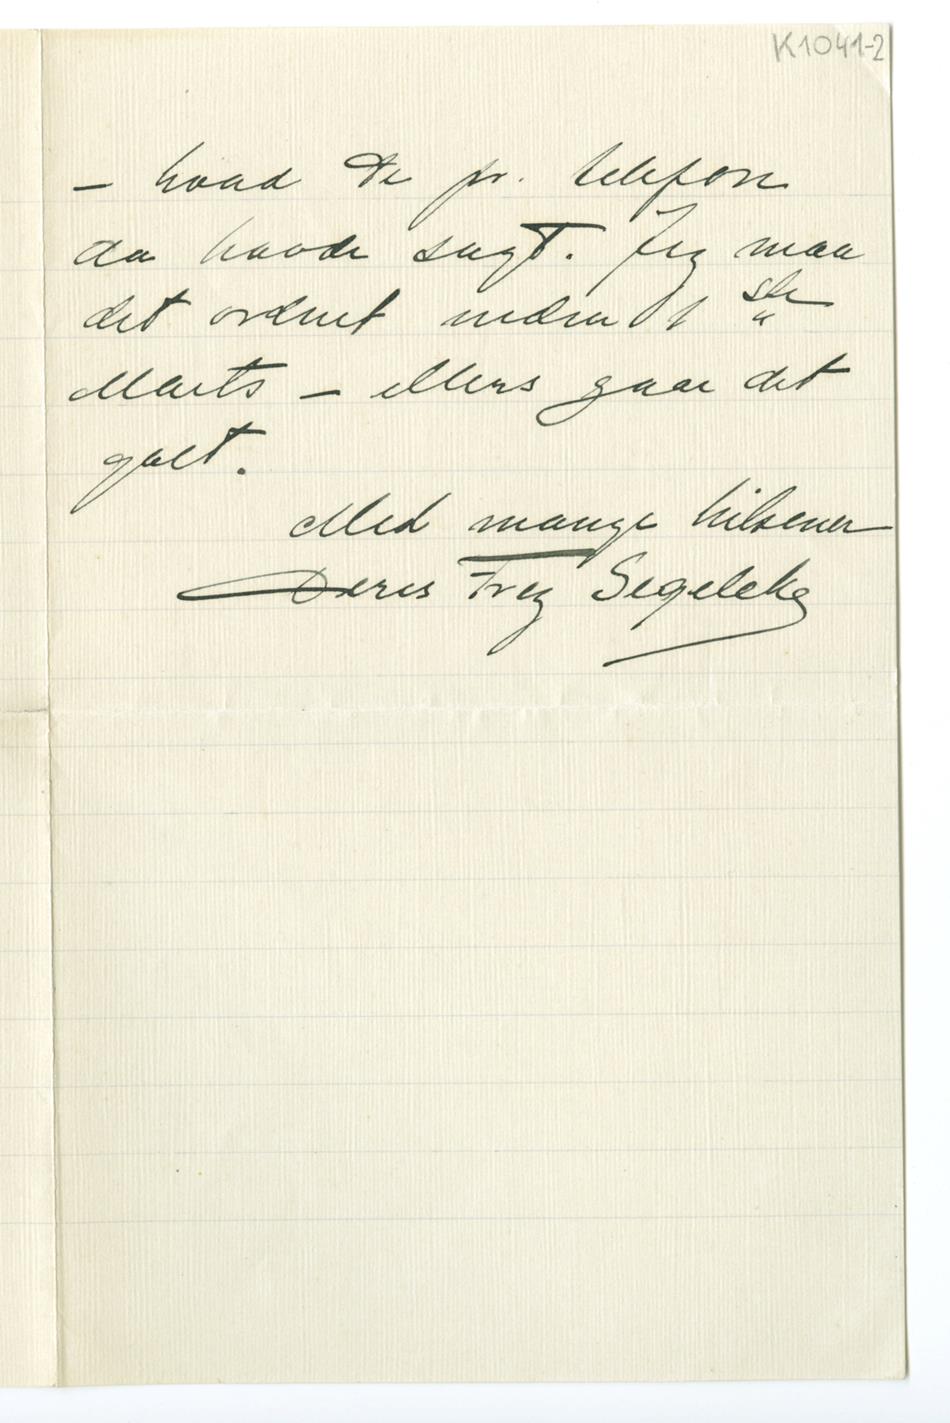 K1041-2
– hvad De pr. telefon
da havde sagt. Jeg maa
det ordnet inden 1 ste
Marts – ellers gaar det
galt.
Med mange hilsener
Deres Frey Segelcke